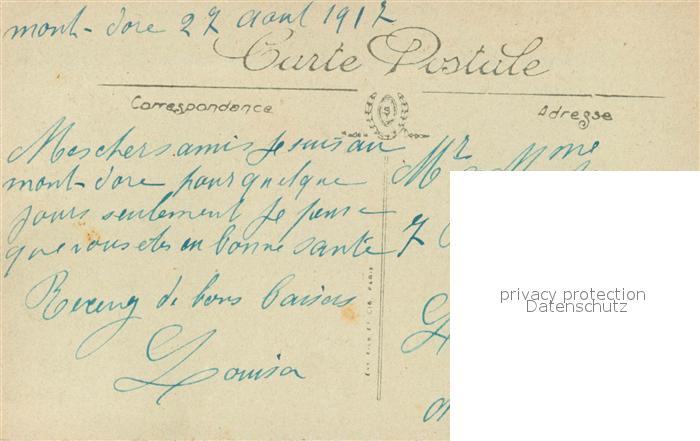 mont-dore 27 aout 1917
Carte Postale
Correspondance
Adresse
Mes chers amis Je suis au
mont-dore pour quelque
jours seulement Je pense
que vous etes en bonne santé
Recevez de bons baisers
Louisa
Mr Mme
7
privacy protection
Datenschutz